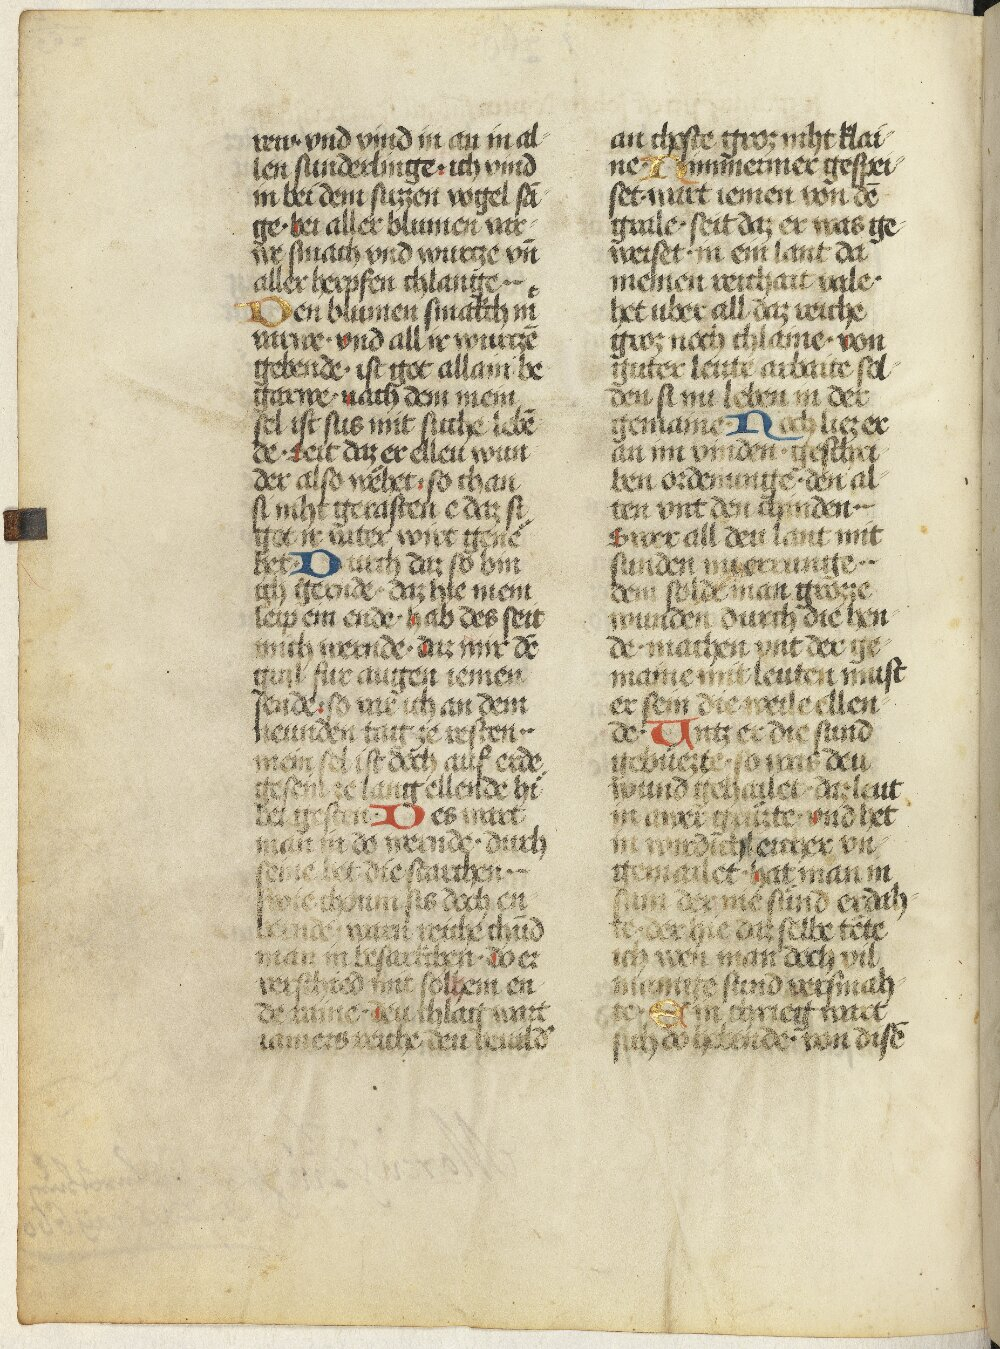 ren· vnd vind in an in al-
len sunderlinge· ich vind
in bei dem suzzen vogel sā
ge· bei aller blumen var-
we smach vnd wurtze vn̄
aller herpfen chlange··
Den blumen smakch in
varwe· vnd all ir wurtzē
gebende· ist got allain be
garwe· nach dem mein
sel ist sus mit suche lebē
de· Seit daz er elleu wun
der also webet· so chan
si niht gerasten e daz si
got ir vater wirt gene
bet· Durch daz so bin
ich gernde· daz hie mein
leip ein ende· hab des seit
mich wernde· daz mir dē
gral fur augen iemen
sende· so wil ich an dem
neunden tag ze resten··
mein sel ist doch auf erde
gesent ze lang ellende hi
bei gesten· Des wart
man in do wernde· durch
seine bet die starchen··
swie chaum sis doch en
bernde· warn reiche chūd
man in besarkchen· do er
verschied mit solhem en
de raine· deu chlag wart
iamers reiche deu
an choste groz niht klai-
ne· Nimmermer gespei-
set· wart iemen von dē
grale· seit daz er was ge
weiset· in ein lant da
meinen reichait vale·
het uber all daz reiche
groz noch chlaine· von
guter leute arbaite sol-
den si nu leben in der
gemaine· Noch liez er
an im vinden· geschri-
ben ordenunge· den al-
ten vnt den chinden··
Swer all deu lant mit
sunden
dem solde man grozze
wunden durch die hen
de· machen vnt der ge-
maine mit leuten must
er sein die weile ellen-
de· Untz er die sund
gebuezte· so was deu
wund gehailet· daz leut
in awer gruzte· vnd het
in wirdichleicher vn-
gemailet· hat man in
sam der nie sund erdah-
te· der hie daz selbe tete
ich wen man doch vil
manige sund versmah-
te· Ein chrieg wart
sich do hebende· von disē